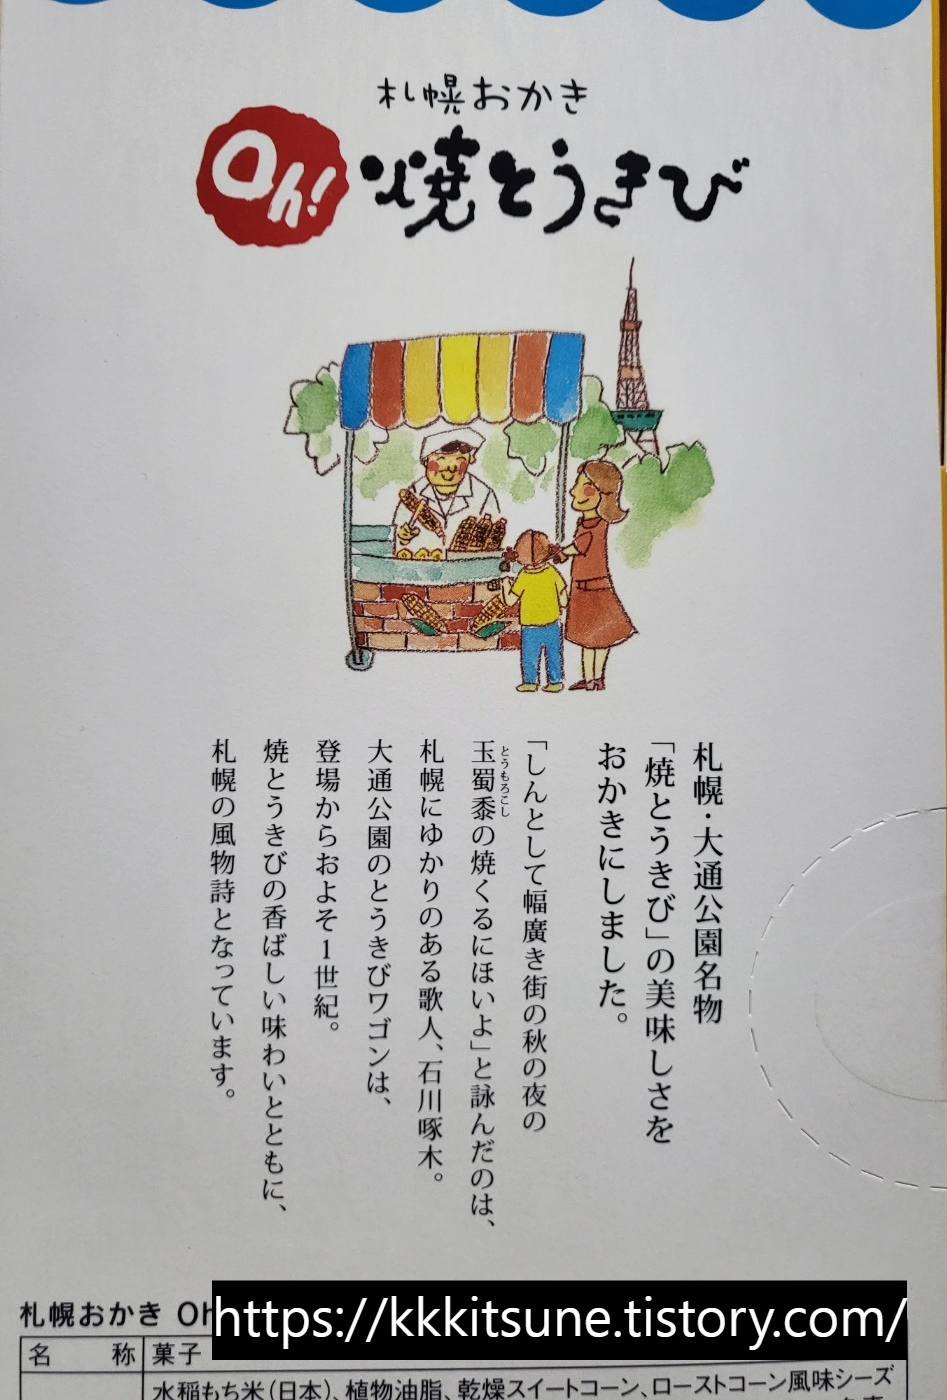 札幌おかき
Oh!焼とうきび
札幌・大通公園名物
「焼とうきび」の美味しさを
おかきにしました。
「しんとして幅廣き街の秋の夜の
玉蜀黍の焼くるにほいよ」と詠んだのは、
とうもろこし
札幌にゆかりのある歌人、石川啄木。
大通公園のとうきびワゴンは、
登場からおよそ1世紀。
焼とうきびの香ばしい味わいとともに、
札幌の風物詩となっています。
札幌おかき Oh
https://kkkitsune.tistory.com/
名 称 菓子
水稲もち米(日本)、植物油脂、乾燥スイートコーン、ローストコーン風味シーズ